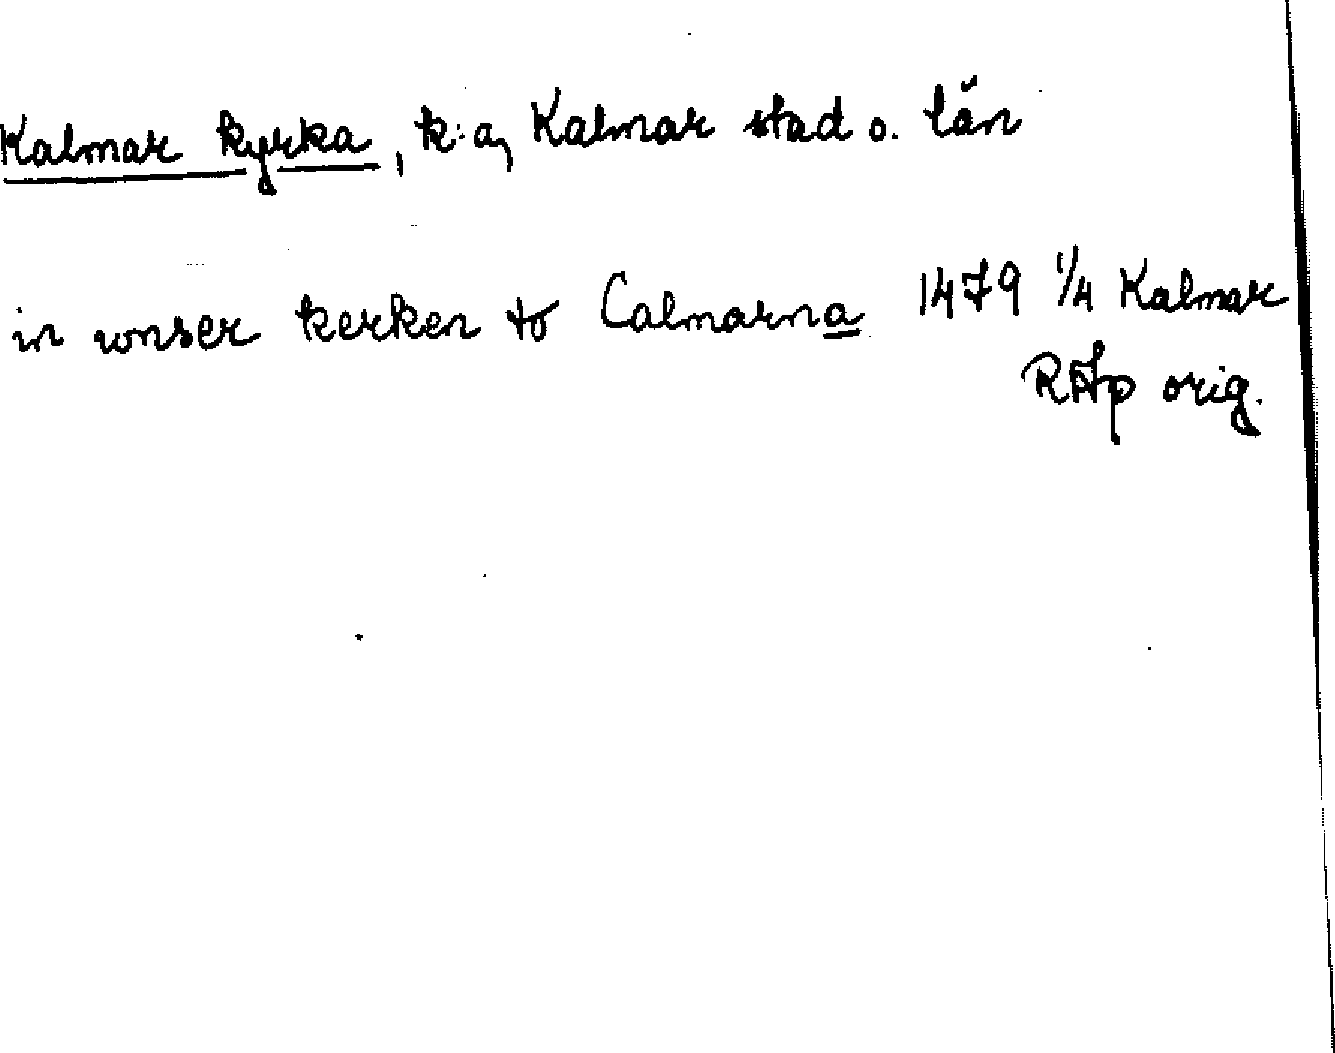 Kalmar kyrka, k:a, Kalmar stad o. län
in wnser kerken to Calmarna 1479 1/4 Kalmar
RAp orig.